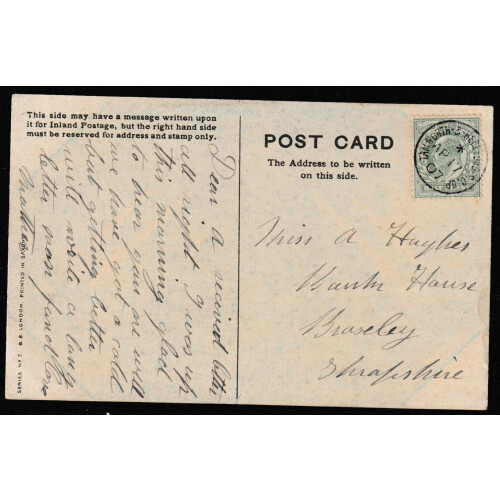 This side may have a message written upon
it for Inland Postage, but the right hand side
must be reserved for address and stamp only.
Dear A recieved letter
all right I was up
this morning glad
to hear you are well
we have got a cold
but getting better
will write a long
letter soon fondest love
Mother
SERIES No
LONDON. PRINTED IN
POST CARD
The Address to be written
on this side.
Miss A Hughes
House
Broseley
Shropshire